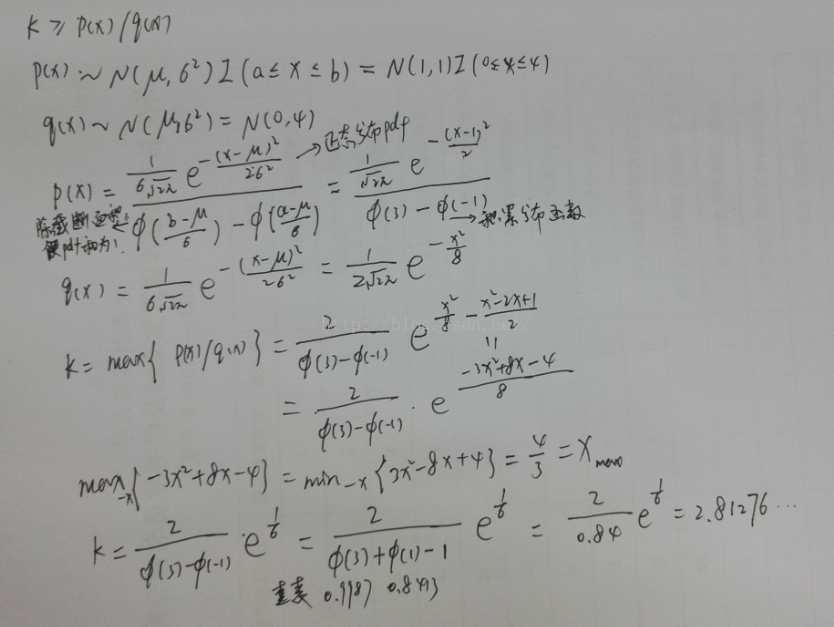 K ≥ p(x)/q(x)
p(x) ~ N(μ, σ²) I(a ≤ x ≤ b) = N(1,1) I(0 ≤ x ≤ 4)
q(x) ~ N(μ, σ²) = N(0,4)
p(x) = \frac{\frac{1}{σ\sqrt{2π}} e^{-\frac{(x-μ)²}{2σ²}}}{Φ(\frac{b-μ}{σ}) - Φ(\frac{a-μ}{σ})} = \frac{\frac{1}{\sqrt{2π}} e^{-\frac{(x-1)²}{2}}}{Φ(3) - Φ(-1)}
→ 正态分布pdf
除截断面积
使pdf和为1.
→ 累分布函数
q(x) = \frac{1}{σ\sqrt{2π}} e^{-\frac{(x-μ)²}{2σ²}} = \frac{1}{2\sqrt{2π}} e^{-\frac{x²}{8}}
k = max{ p(x)/q(x) } = \frac{2}{Φ(3)-Φ(-1)} e^{\frac{x²}{8} - \frac{x²-2x+1}{2}}
= \frac{2}{Φ(3)-Φ(-1)} · e^{\frac{-3x²+8x-4}{8}}
max_{-x}{-3x²+8x-4} = min_{-x}{3x²-8x+4} = \frac{4}{3} = x_{max}
k = \frac{2}{Φ(3)-Φ(-1)} · e^{\frac{1}{6}} = \frac{2}{Φ(3)+Φ(1)-1} e^{\frac{1}{6}} = \frac{2}{0.84} e^{\frac{1}{6}} = 2.81276...
查表 0.9987 0.8413